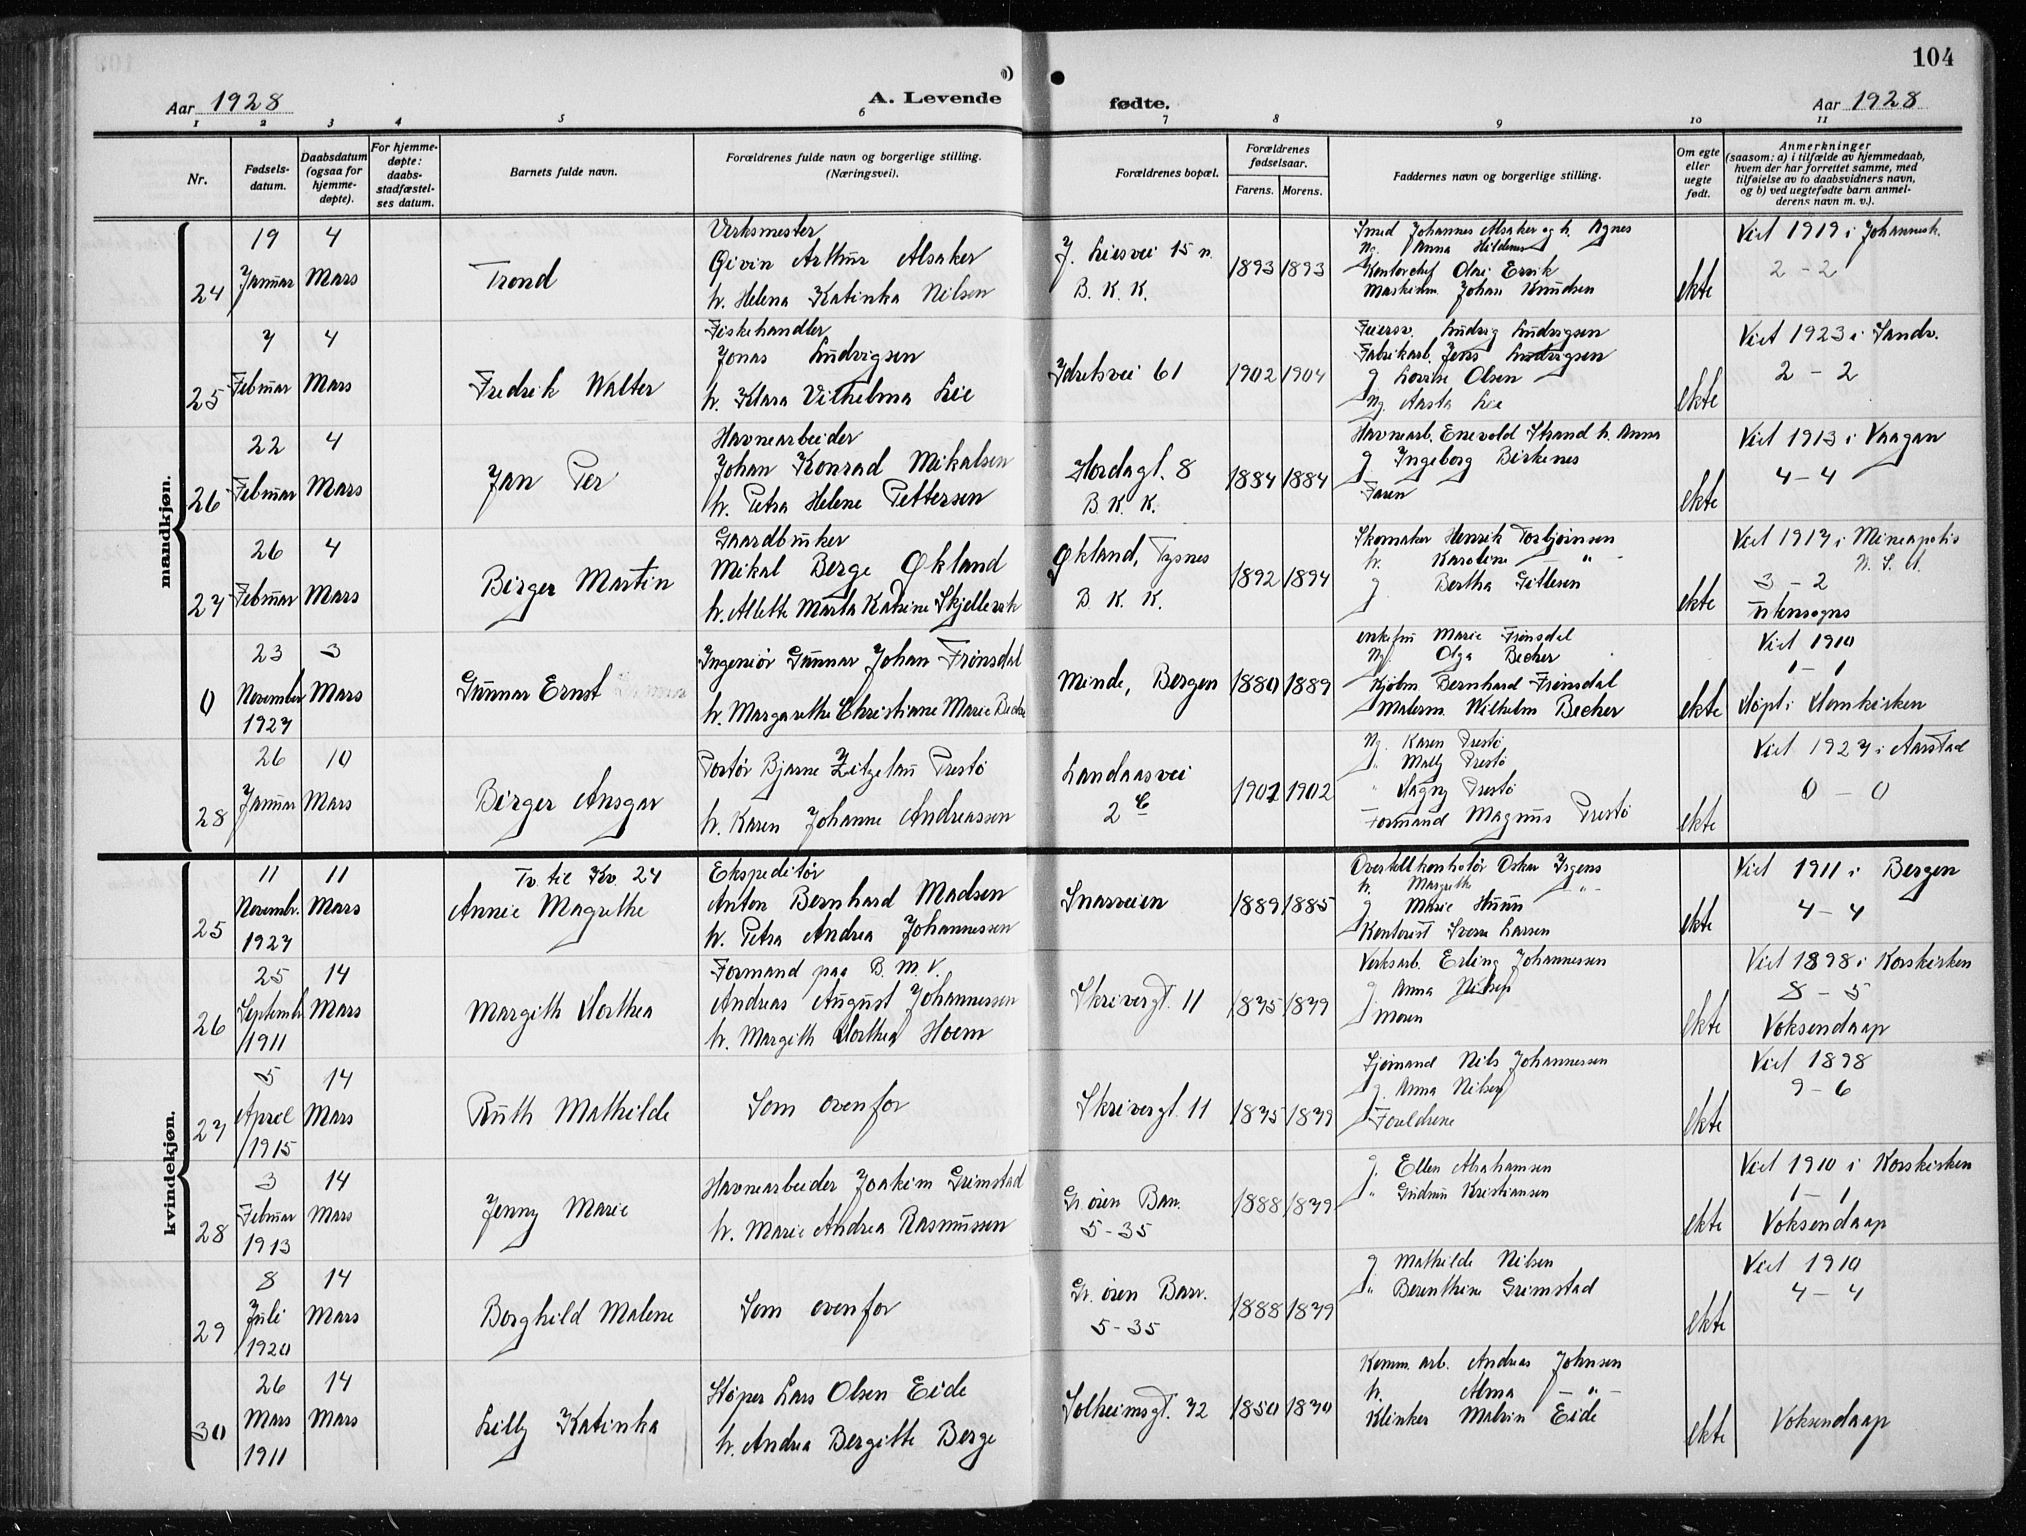 104
Aar 1928
A. Levende
fødte.
Aar 1928
1 2 3 4 5 6 7 8 9 10 11
Nr.
Fødsels-
datum.
Daabsdatum
(ogsaa for
hjemme-
døpte).
For hjemme-
døpte:
daabs-
stadfæstel-
ses datum.
Barnets fulde navn.
Forældrenes fulde navn og borgerlige stilling.
(Næringsvei).
Forældrenes bopæl.
Forældrenes
fødselsaar.
Farens. Morens.
Faddernes navn og borgerlige stilling.
Om egte
eller
uegte
født.
Anmerkninger
(saasom: a) i tilfælde av hjemmedaab,
hvem der har forrettet samme, med
tilføielse av to daabsvidners navn,
og b) ved uegtefødte barn anmel-
derens navn m. v.).
mandkjøn.
24
19
Januar
4
Mars
Trond
Verksmester
Øivin Arthur Alsaker
h. Helena Katinka Nilsen
J. Liesvei 15 n.
B. K. K.
1893 1893
Smed Johannes Alsaker og h. Agnes
Ug. Anna Hildenes
Kontorchef Olai Ervik
Maskinm. Johan Knudsen
ekte
Viet 1919 i Johannesk.
2 - 2
25
7
Februar
4
Mars
Fredrik Walter
Fiskehandler
Jonas Ludvigsen
h. Klara Vilhelma Lie
Idretsvei 61
1902 1904
Feiersv. Ludvig Ludvigsen
Fabrikarb. Jens Ludvigsen
g. Lovise Olsen
Ug. Aasta Lie
ekte
Viet 1923 i Sandv.
2 - 2
26
22
Februar
4
Mars
Jan Per
Havnearbeider
Johan Konrad Mikalsen
h. Petra Helene Pettersen
Hordagt. 8
B. K. K.
1884 1884
Havnearb. Enevold Strand h. Anna
g. Ingeborg Birkenes
Faren
ekte
Viet 1913 i Vaagan
4 - 4
27
26
Februar
4
Mars
Birger Martin
Gaardbruker
Mikal Berge Økland
h. Alette Marta Katrine Skjellevik
Økland, Tysnes
B. K. K.
1892 1894
Skomaker Henrik Torbjørnsen
h. Karoline — " —
g. Bertha Gillesen
ekte
Viet 1917 i Mineapolis
U. S. A.
3 - 2
utensogns
0
23
November
1927
3
Mars
Gunnar Ernst
Ingeniør Gunnar Johan Frønsdal
h. Margarethe Christiane Marie Becher
Minde, Bergen
1880 1889
enkefru Marie Frønsdal
Ug. Olga Becher
Kjøbm. Bernhard Frønsdal
Malerm. Wilhelm Becher
ekte
Viet 1910
1 - 1
Døpt i Domkirken
28
26
Januar
10
Mars
Birger Ansgar
Portør Bjarne Zitzelau Prestø
h. Karen Johanne Andreassen
Landaasvei
2 C
1901 1902
Ug. Karen Prestø
" Mally Prestø
" Dagny Prestø
Formand Magnus Prestø
ekte
Viet 1927 i Aarstad
0 - 0
kvindekjøn.
25
11
Novembr.
1927
11
Mars
Tv. til Kv 24
Annie Magrethe
Ekspeditør
Anton Bernhard Madsen
h. Petra Andrea Johannessen
Snarveien
1889 1885
Overtollkontrolør Oskar Irgens
h. Margrethe — " —
g. Marie Huun
Kontorist Sverre Larsen
ekte
Viet 1911 i Bergen
4 - 4
26
25
Septembr.
1911
14
Mars
Margith Dorthea
Formand paa B. M. V.
Andreas August Johannessen
h. Margith Dorthea Hoem
Skrivergt. 11
1875 1879
Verksarb. Erling Johannessen
g. Anna Nilsen
Moren
ekte
Viet 1898 i Korskirken
8 - 5
Voksendaap
27
5
April
1915
14
Mars
Ruth Mathilde
Som ovenfor
Skrivergt. 11
1875 1879
Sjømand Nils Johannessen
g. Anna Nilsen
Foreldrene
ekte
Viet 1898
9 - 6
28
3
Februar
1913
14
Mars
Jenny Marie
Havnearbeider Joakim Grimstad
h. Marie Andrea Rasmussen
Gr. øren Bar.
5-35
1888 1879
g. Ellen Abrahamsen
" Gudrun Kristiansen
ekte
Viet 1910 i Korskirken
1 - 1
Voksendaap
29
8
Juli
1920
14
Mars
Borghild Malene
Som ovenfor
Gr. øren Barr.
5-35
1888 1879
g. Mathilde Nilsen
" Berenthine Grimstad
ekte
Viet 1910
4 - 4
30
26
Mars
1911
14
Mars
Lilly Katinka
Støper Lars Olsen Eide
h. Andrea Bergitte Berge
Solheimsgt. 72
1850 1870
Komm. arb. Andreas Johnsen
h. Alma — " —
Klinker Malvin Eide
ekte
Voksendaap